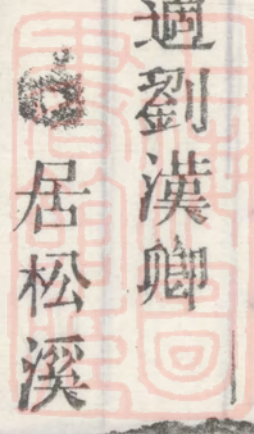 適劉漢卿
居松溪